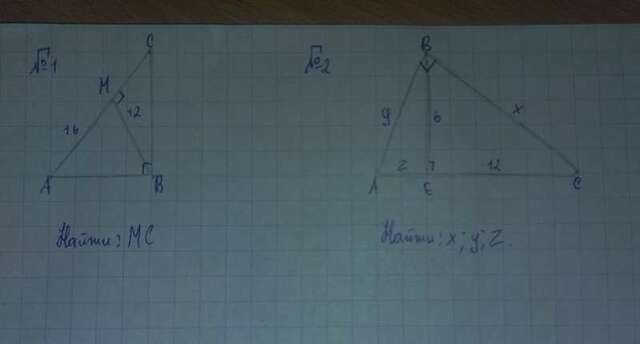 №1
C
M
12
16
A
B
Найти: MC
№2
B
y
6
x
z
12
A
E
C
Найти: x; y; z.